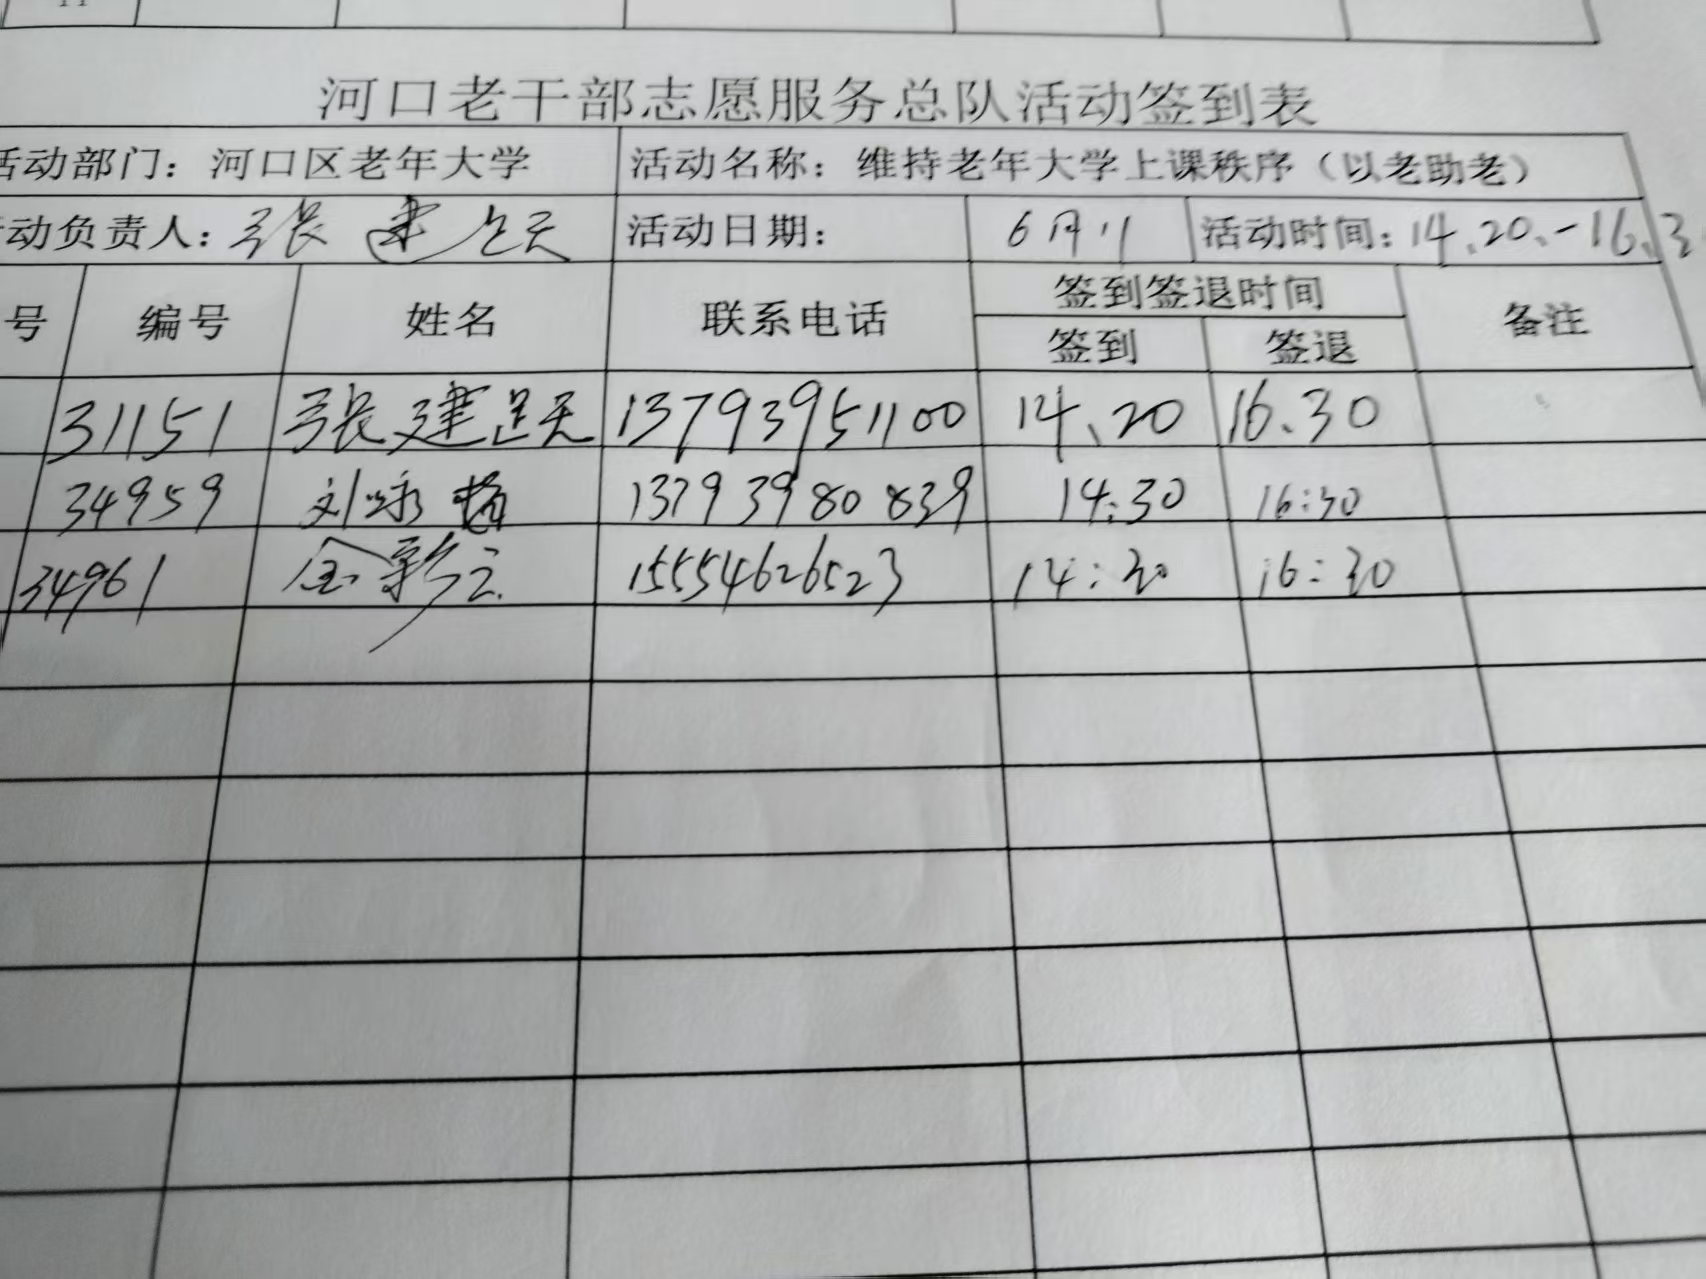 11
河口老干部志愿服务总队活动签到表
活动部门：河口区老年大学 活动名称：维持老年大学上课秩序（以老助老）
动负责人：张建 活动日期： 6月11 活动时间：14.20.-16.3
号 编号 姓名 联系电话 签到签退时间 备注
签到 签退
31151 张建 13793951100 14.20 16.30
34959 刘咏梅 13793980839 14:30 16:30
34961 金彩云 15554626523 14:30 16:30